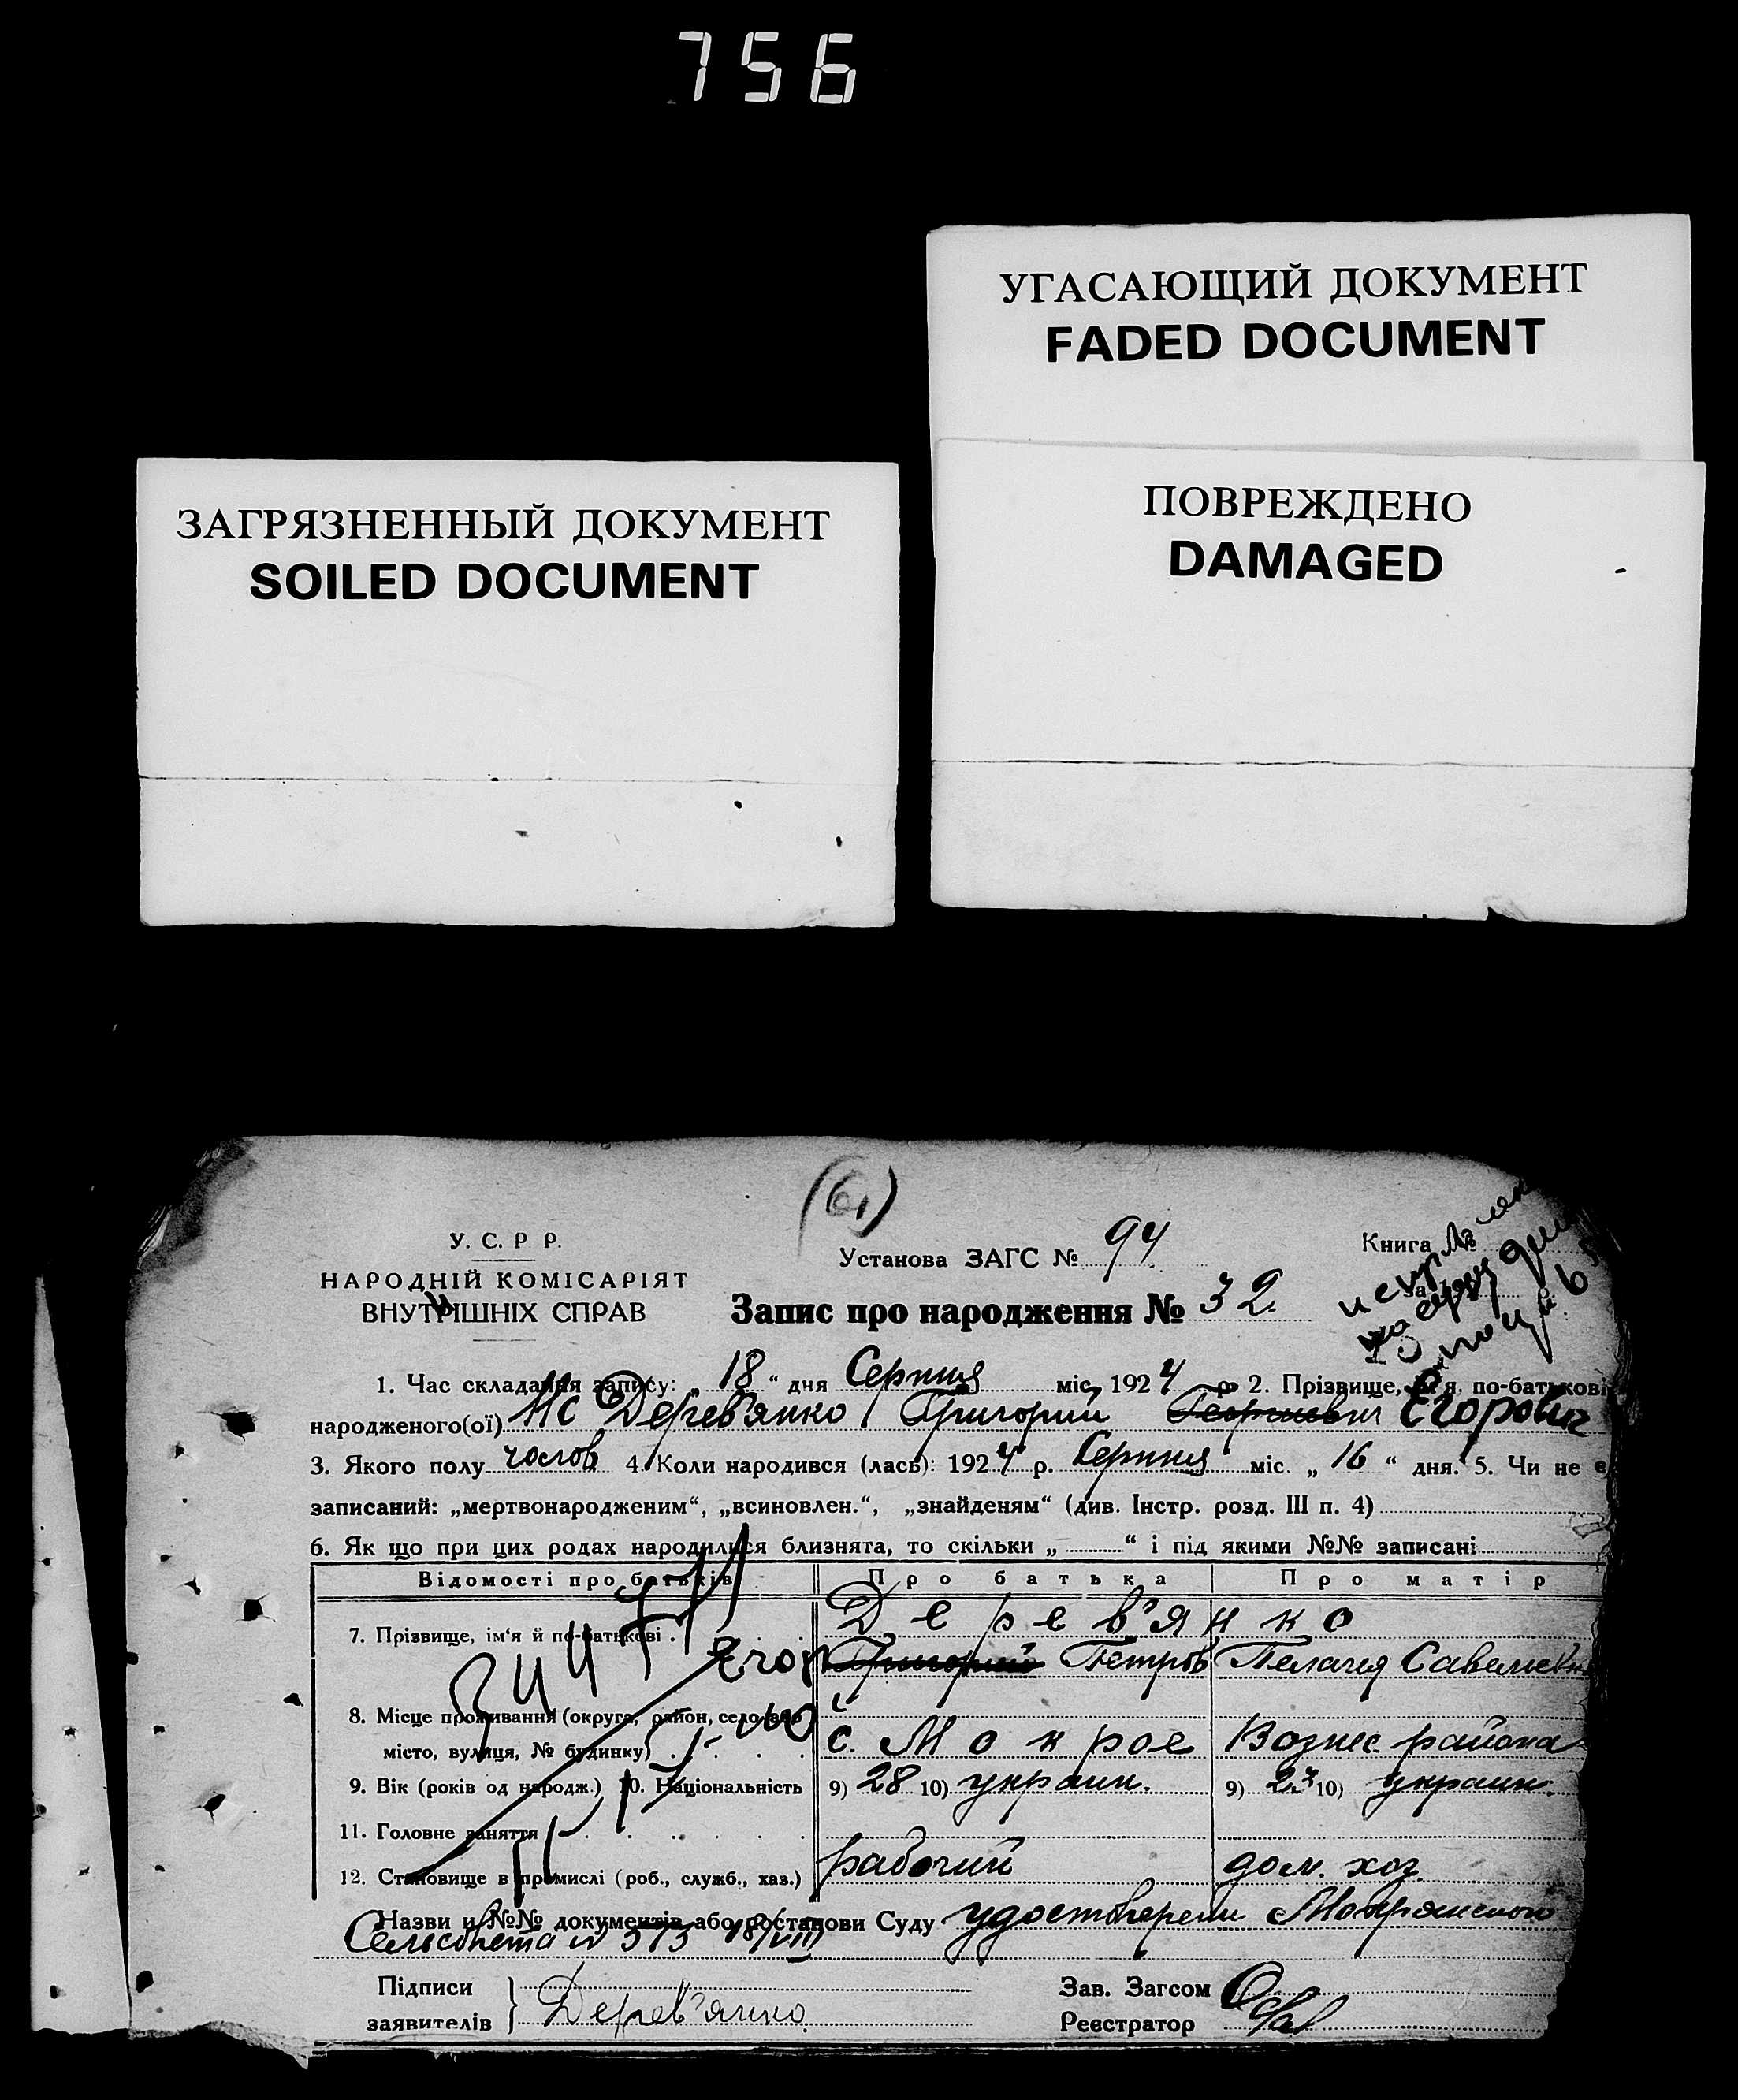 756
УГАСАЮЩИЙ ДОКУМЕНТ
FADED DOCUMENT
ЗАГРЯЗНЕННЫЙ ДОКУМЕНТ
SOILED DOCUMENT
ПОВРЕЖДЕНО
DAMAGED
(61)
У. С. Р Р.
НАРОДНІЙ КОМІСАРІЯТ
ВНУТРІШНІХ СПРАВ
Установа ЗАГС № 94
Книга №
Запис про народження № 32
1. Час складання запису: „ 18 “ дня Серпня міс. 1924 р 2. Прізвище, ім'я, по-батькові
народженого(ої) Дерев'янко Григорий Георгиевич Егорович
3. Якого полу 4. Коли народився (лась): 1924 р. Серпня міс. „ 16 “ дня. 5. Чи не є
записаний: „мертвонародженим“, „всиновлен.“, „знайденям“ (див. Інстр. розд. III п. 4)
6. Як що при цих родах народилися близнята, то скільки „ “ і під якими №№ записані
Відомості про батьків Про батька Про матір
7. Прізвище, ім‘я й по-батькові Дерев'янко
Егор Григорий Петров Пелагея Савельевн
8. Місце проживання (округа, район, село або
місто, вулиця, № будинку) с. Мокрое Вознес. района
9. Вік (років од народж.) 10. Національність 9) 28 10) украин. 9) 10) украин.
11. Головне заняття
12. Становище в промислі (роб., служб., хаз.) рабочий дом. хоз.
Назви и №№ документів або постанови Суду удостверени Мокрянской
Сельсовета № 575 18/VIII
Підписи
заявителів Дерев'янко
Зав. Загсом
Реєстратор